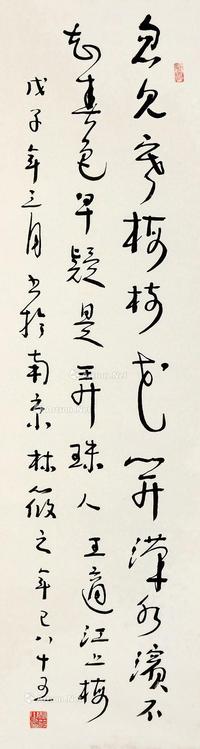 忽見寒梅樹花開漢水濱不
知春色早疑是弄珠人 王適江上梅
戊子年三月書於南京林筱之年已八十五